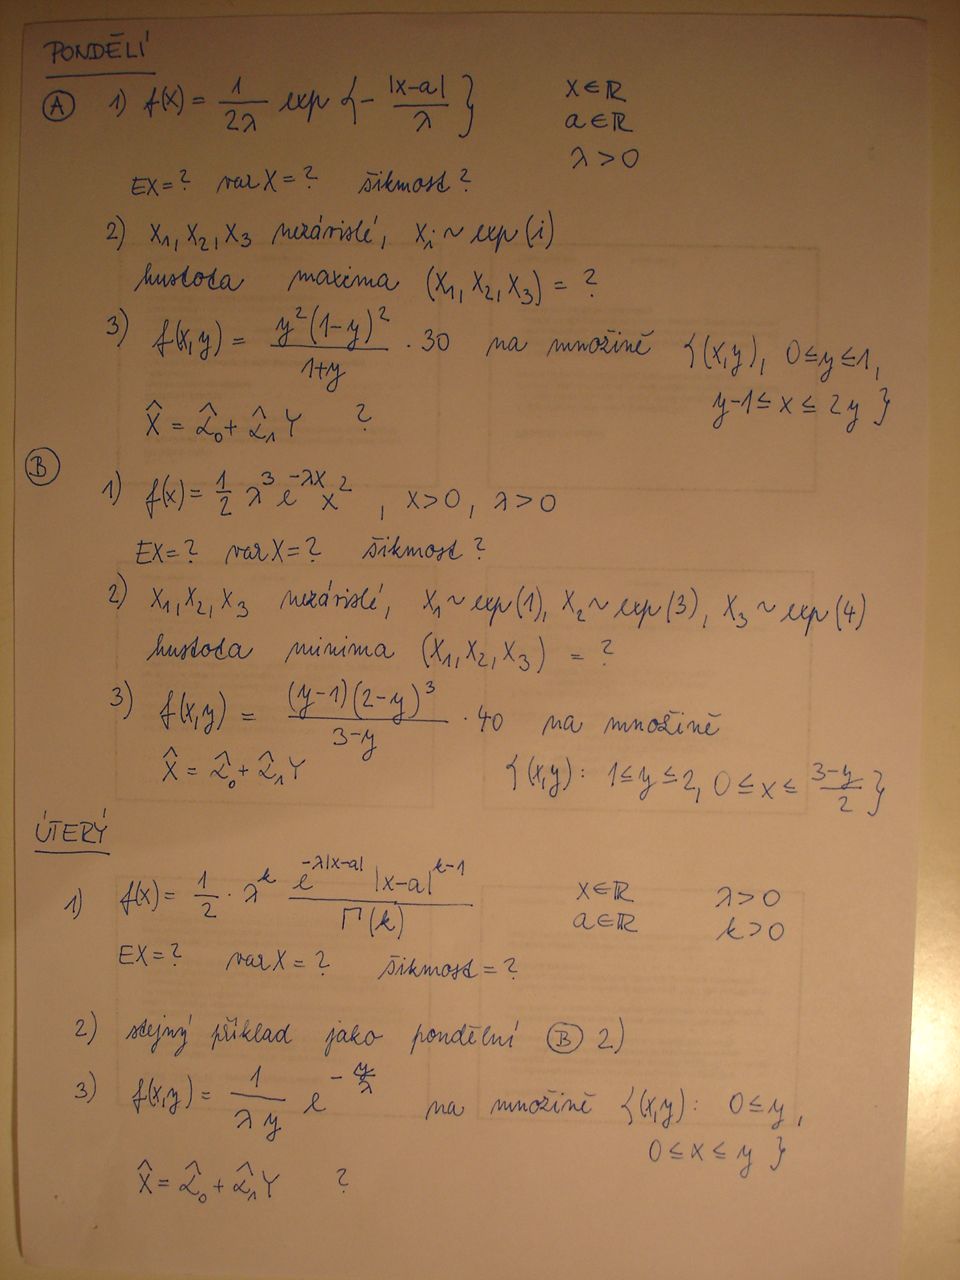 PONDĚLÍ
Ⓐ 1) f(x) = 1/(2λ) exp {− |x−a|/λ} x∈ℝ
a∈ℝ
λ>0
EX=? varX=? šikmost?
2) X₁, X₂, X₃ nezávislé, Xᵢ ~ exp(i)
hustota maxima (X₁, X₂, X₃) = ?
3) f(x,y) = y²(1−y)²/(1+y) · 30 na množině {(x,y), 0≤y≤1,
y−1≤x≤2y}
X̂ = α̂₀ + α̂₁Y ?
Ⓑ 1) f(x) = ½ λ³ e^{−λx} x², x>0, λ>0
EX=? varX=? šikmost?
2) X₁, X₂, X₃ nezávislé, X₁~exp(1), X₂~exp(3), X₃~exp(4)
hustota minima (X₁, X₂, X₃) = ?
3) f(x,y) = (y−1)(2−y)³/(3−y) · 40 na množině
{(x,y): 1≤y≤2, 0≤x≤(3−y)/2}
X̂ = α̂₀ + α̂₁Y
ÚTERÝ
1) f(x) = ½ · λ^k e^{−λ|x−a|} |x−a|^{k−1}/Γ(k) x∈ℝ λ>0
a∈ℝ k>0
EX=? varX=? šikmost=?
2) stejný příklad jako pondělní Ⓑ 2)
3) f(x,y) = 1/(λy) e^{−y/λ} na množině {(x,y): 0≤y,
0≤x≤y}
X̂ = α̂₀ + α̂₁Y ?